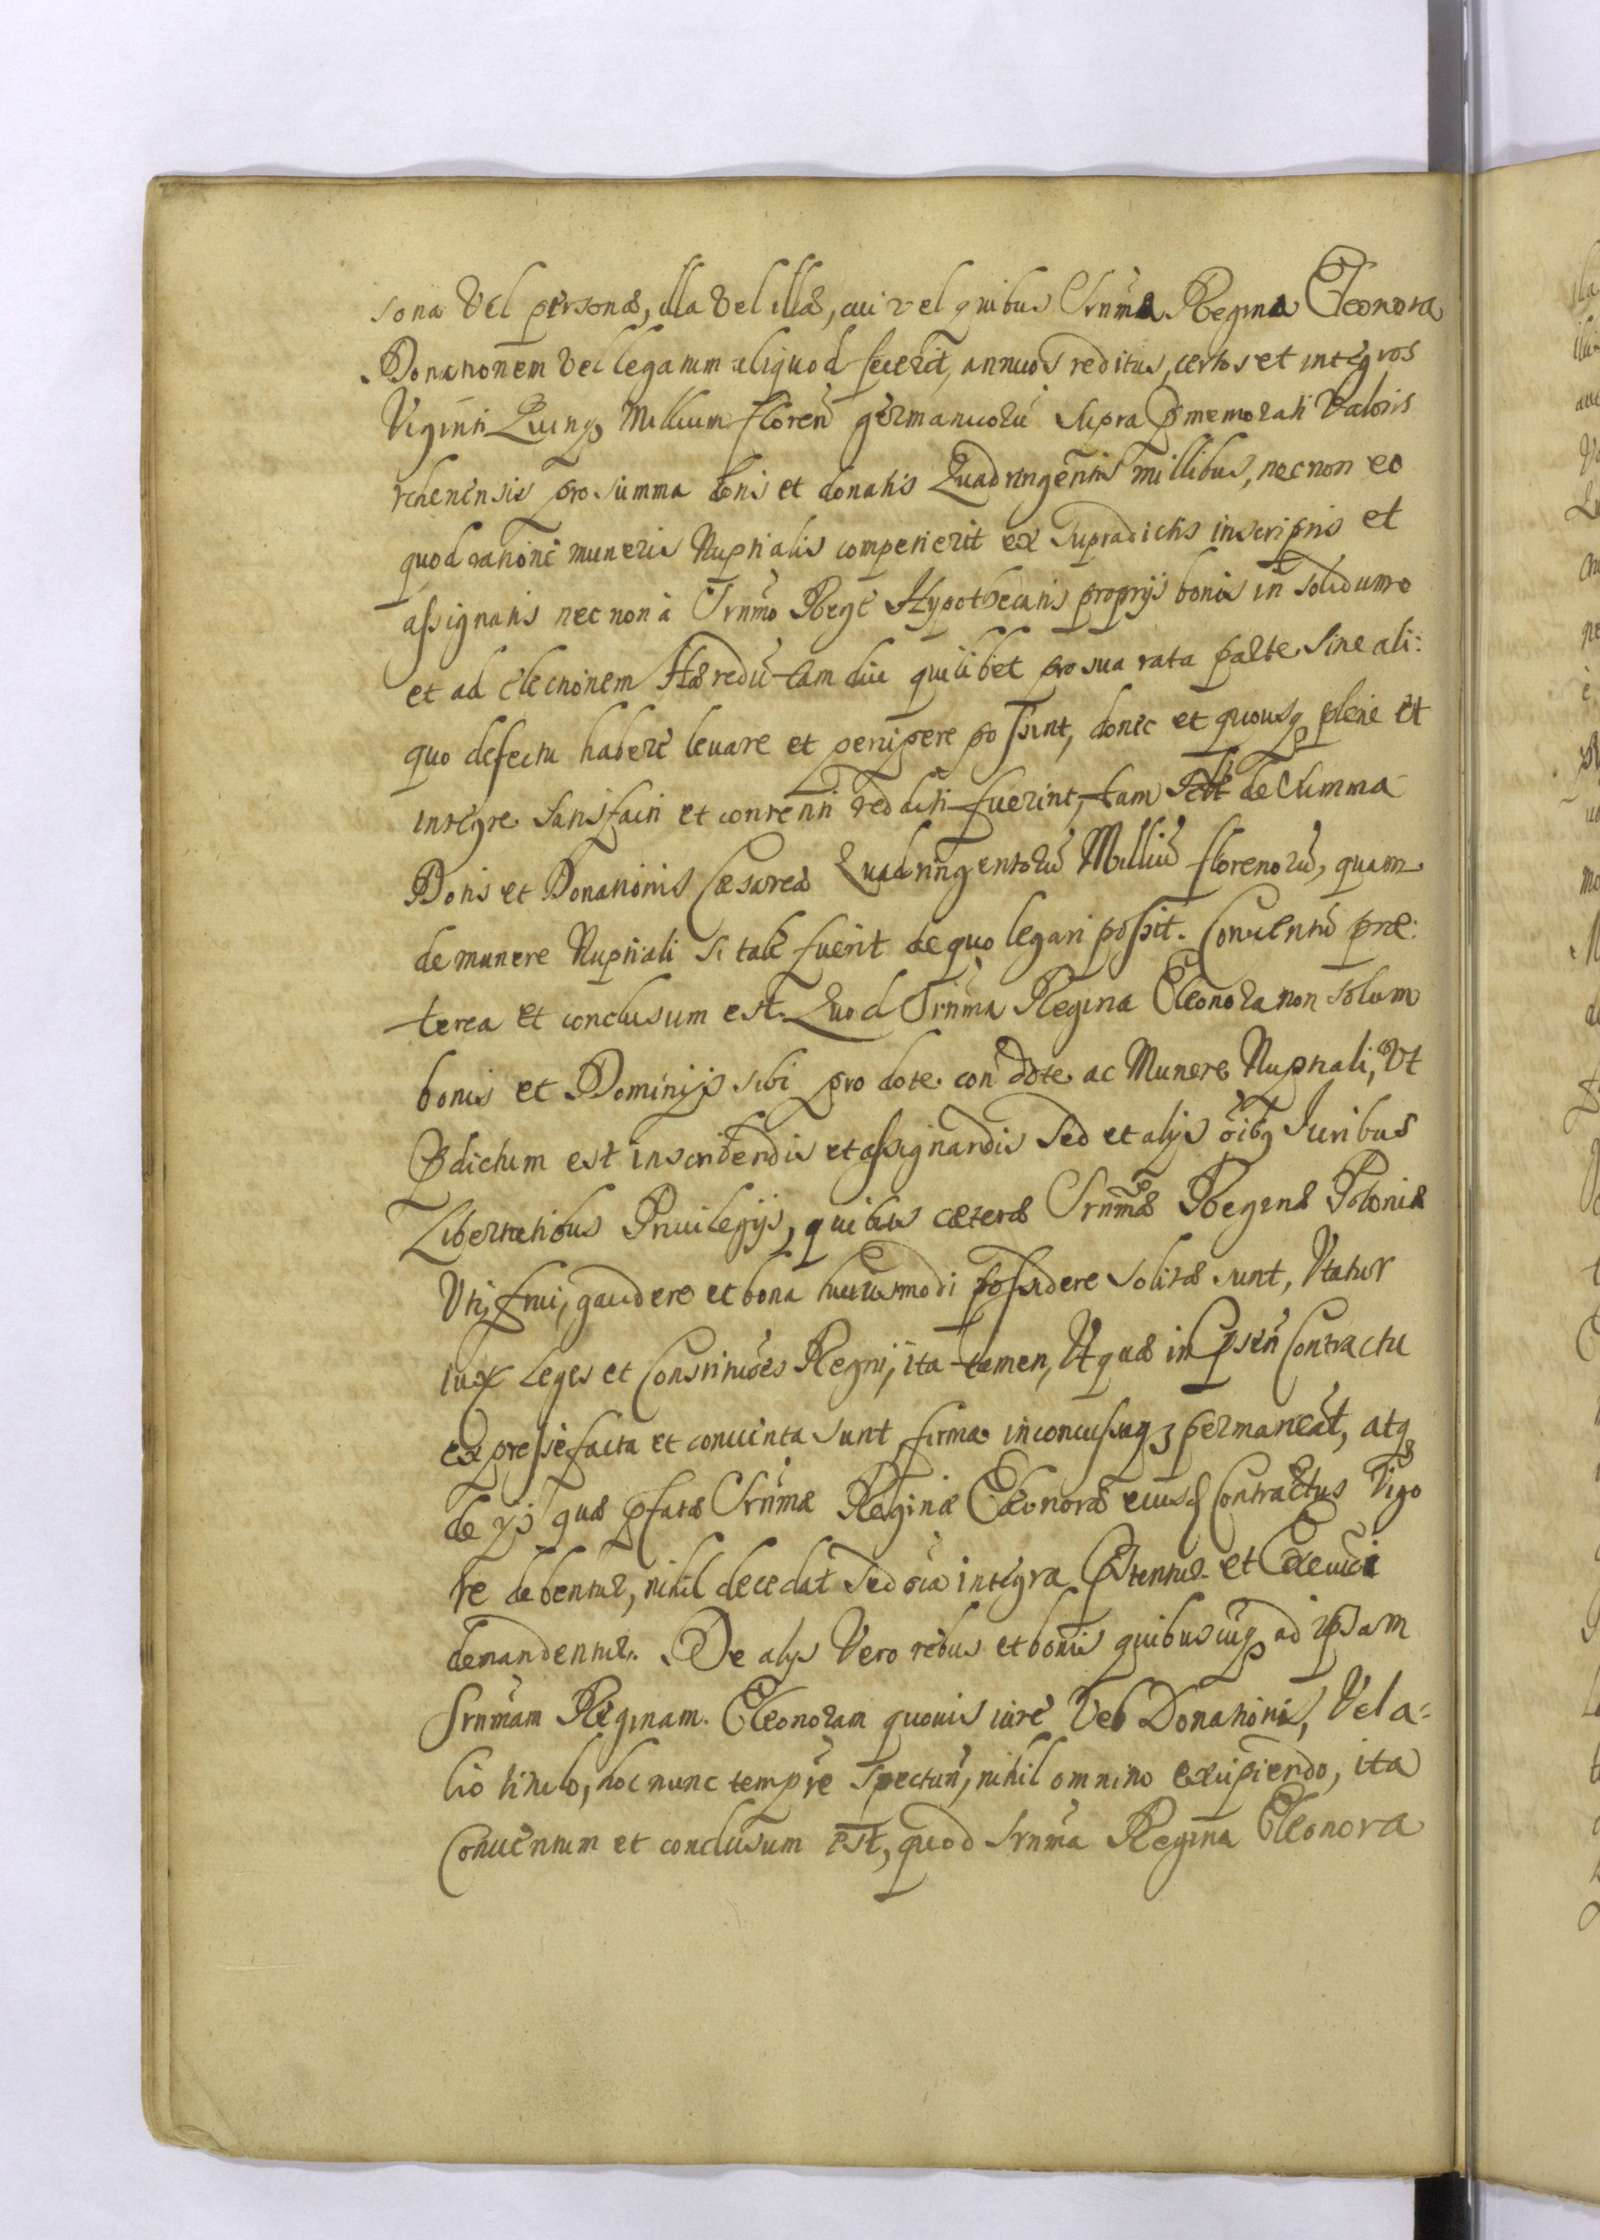 sona Vel personæ, illa Vel illæ, cui vel quibus Srnma Regina Eleonora
Donationem Vel legatum aliquod fecerit, annuos reditus, certos et integros
Viginti Quinq Millium floren germanicorū supra pmemorati Valoris
rhenensis pro summa dotis et donatis Quadringentis millibus, nec non eo
quod ratione muneris Nuptialis competierit ex supradictis inscriptis et
assignatis nec non à Srnmo Rege Hypothecatis proprijs bonis in solidum
et ad electionem Hæredū tam diu quilibet pro sua rata parte sine ali:
quo defectu habere levare et percipere possint, donec et quousq plene et
integre satisfacti et contenti redditi fuerint, tam de summa
Dotis et Donationis Cæsareæ Quadringentorū Milliū florenorū, quam
de munere Nuptiali si tale fuerit de quo legari possit. Conuentū præ:
terea et conclusum est. Quod Srnma Regina Eleonora non solum
bonis et Dominijs sibi pro dote con dote ac Munere Nuptiali, Vt
pdictum est inscribendis et assignandis sed et alijs oibq Iuribus
Libertatibus Priuilegijs, quibus cæteræ Srnmæ Reginæ Poloniæ
Vti, frui, gaudere et bona huiusmodi possidere solitæ sunt, Vtatur
iux Leges et Constitutōes Regni, ita tamen, Vt quæ in psen Contractu
expresse facta et conuenta sunt firma inconcussaq permaneāt, atq
de ijs quæ pfatæ Srnmæ Reginæ Eleonoræ eiusd Contractus Vigo
re debentur, nihil decedat sed oīa integra pstentur et Executi
demandentur. De alijs Vero rebus et bonis quibuscuq ad ipsam
Srnmam Reginam Eleonoram quouis iure Vel Donationis, Vel a=
lio titulo, hoc nunc tempre spectan, nihil omnino excipiendo, ita
Conuentum et conclusum est, quod Srnma Regina Eleonora